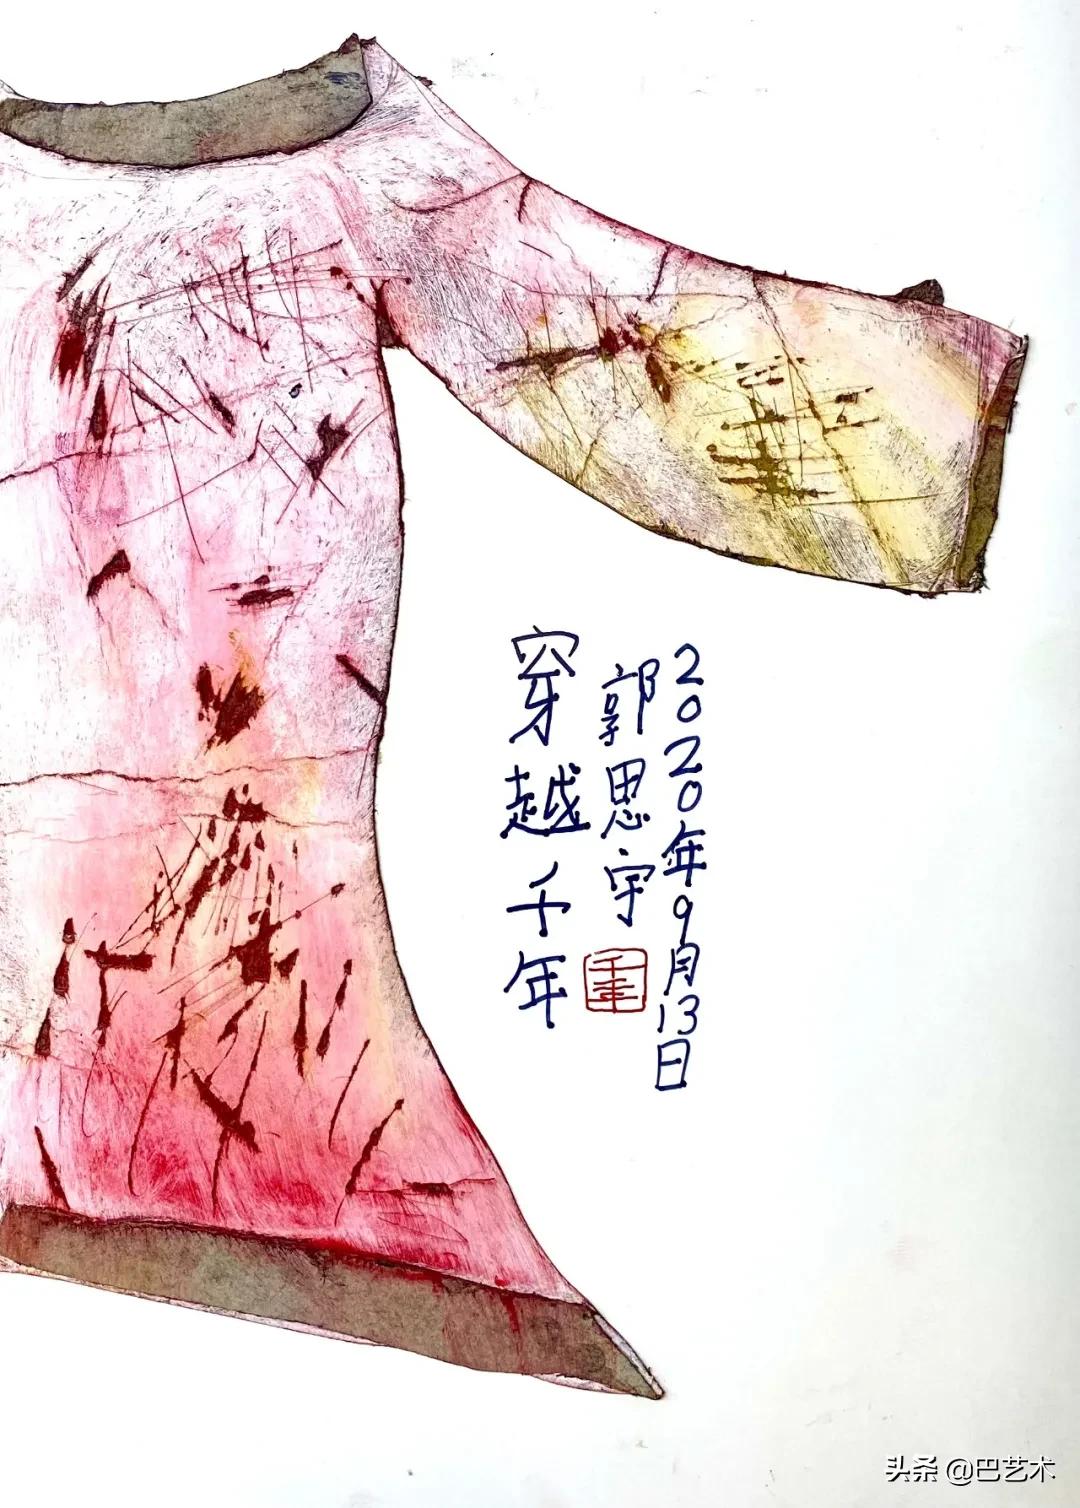 穿越千年
郭思宇
千年
2020年9月13日
头条 @巴艺术